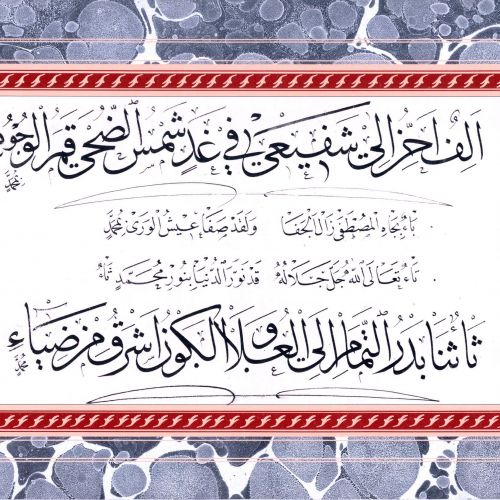 الف احن الى شفيعي في غد شمس الضحى قمر محمد
باء بجاه المصطفى زال الجفا ولقد صفا عيش الورى بمحمد
تاء تعالى الله جل جلاله قد نور الدنيا بنور محمد ثاء
ثا ثنا بدر التمام الى العلا والكون اشرق من ضياء محمد